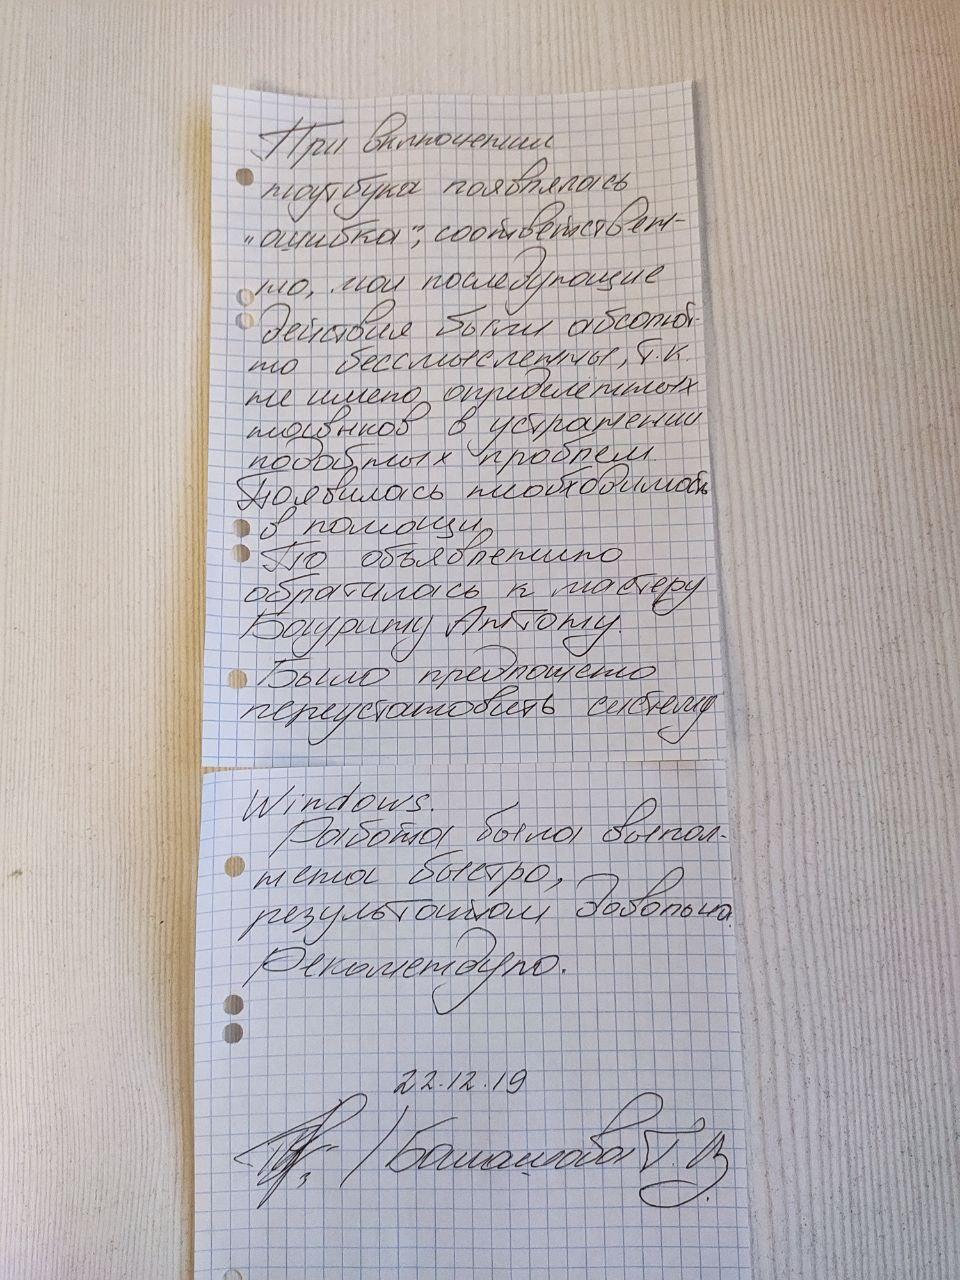 При включении
ноутбука появлялась
„ошибка", соответствен-
но, мои последующие
действия были абсолют-
но бессмысленны, т.к.
не имею определённых
навыков в устранении
подобных проблем.
Появилась необходимость
в помощи.
По объявлению
обратилась к мастеру
Антону.
Было предложено
переустановить систему
Windows.
Работа была выпол-
нена быстро,
результатом довольна.
Рекомендую.
22.12.19
Т.В.